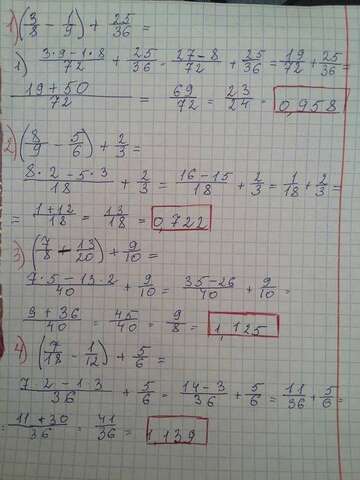 1) (3/8 - 1/9) + 25/36 =
1) (3·9-1·8)/72 + 25/36 = (27-8)/72 + 25/36 = 19/72 + 25/36 =
(19+50)/72 = 69/72 = 23/24 = 0,958
2) (8/9 - 5/6) + 2/3 =
(8·2-5·3)/18 + 2/3 = (16-15)/18 + 2/3 = 1/18 + 2/3 =
= (1+12)/18 = 13/18 = 0,722
3) (7/8 - 13/20) + 9/10 =
(7·5-13·2)/40 + 9/10 = (35-26)/40 + 9/10 =
(9+36)/40 = 45/40 = 9/8 = 1,125
4) (7/18 - 1/12) + 5/6 =
(7·2-1·3)/36 + 5/6 = (14-3)/36 + 5/6 = 11/36 + 5/6 =
= (11+30)/36 = 41/36 = 1,139